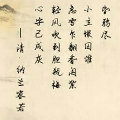 昏鸦尽
小立恨因谁
急雪乍翻香阁絮
轻风吹到胆瓶梅
心字已成灰
——清·纳兰容若